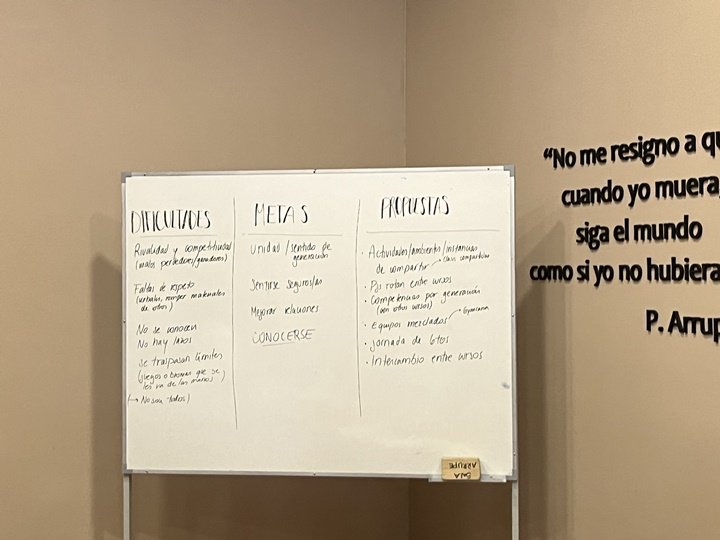 DIFICULTADES
Rivalidad y competitividad
(malos perdedores/ganadores)
Faltas de respeto
(verbales, romper materiales
de otros)
No se conocen
No hay lazos
Se traspasan límites
(juegos o bromas que se
les va de las manos)
↳ No son todos)
METAS
Unidad/sentido de
generación
Sentirse seguros/as
Mejorar relaciones
CONOCERSE
PROPUESTAS
· Actividades/ambientes/instancias
de compartir
clases compartidas
· PJs rotan entre cursos
· Competencias por generación
(con otros cursos)
· Equipos mezclados
gymcana
· Jornada de 6tos
· Intercambio entre cursos
SALA
ARRUPE
“No me resigno a qu
cuando yo muera,
siga el mundo
como si yo no hubiera
P. Arrup